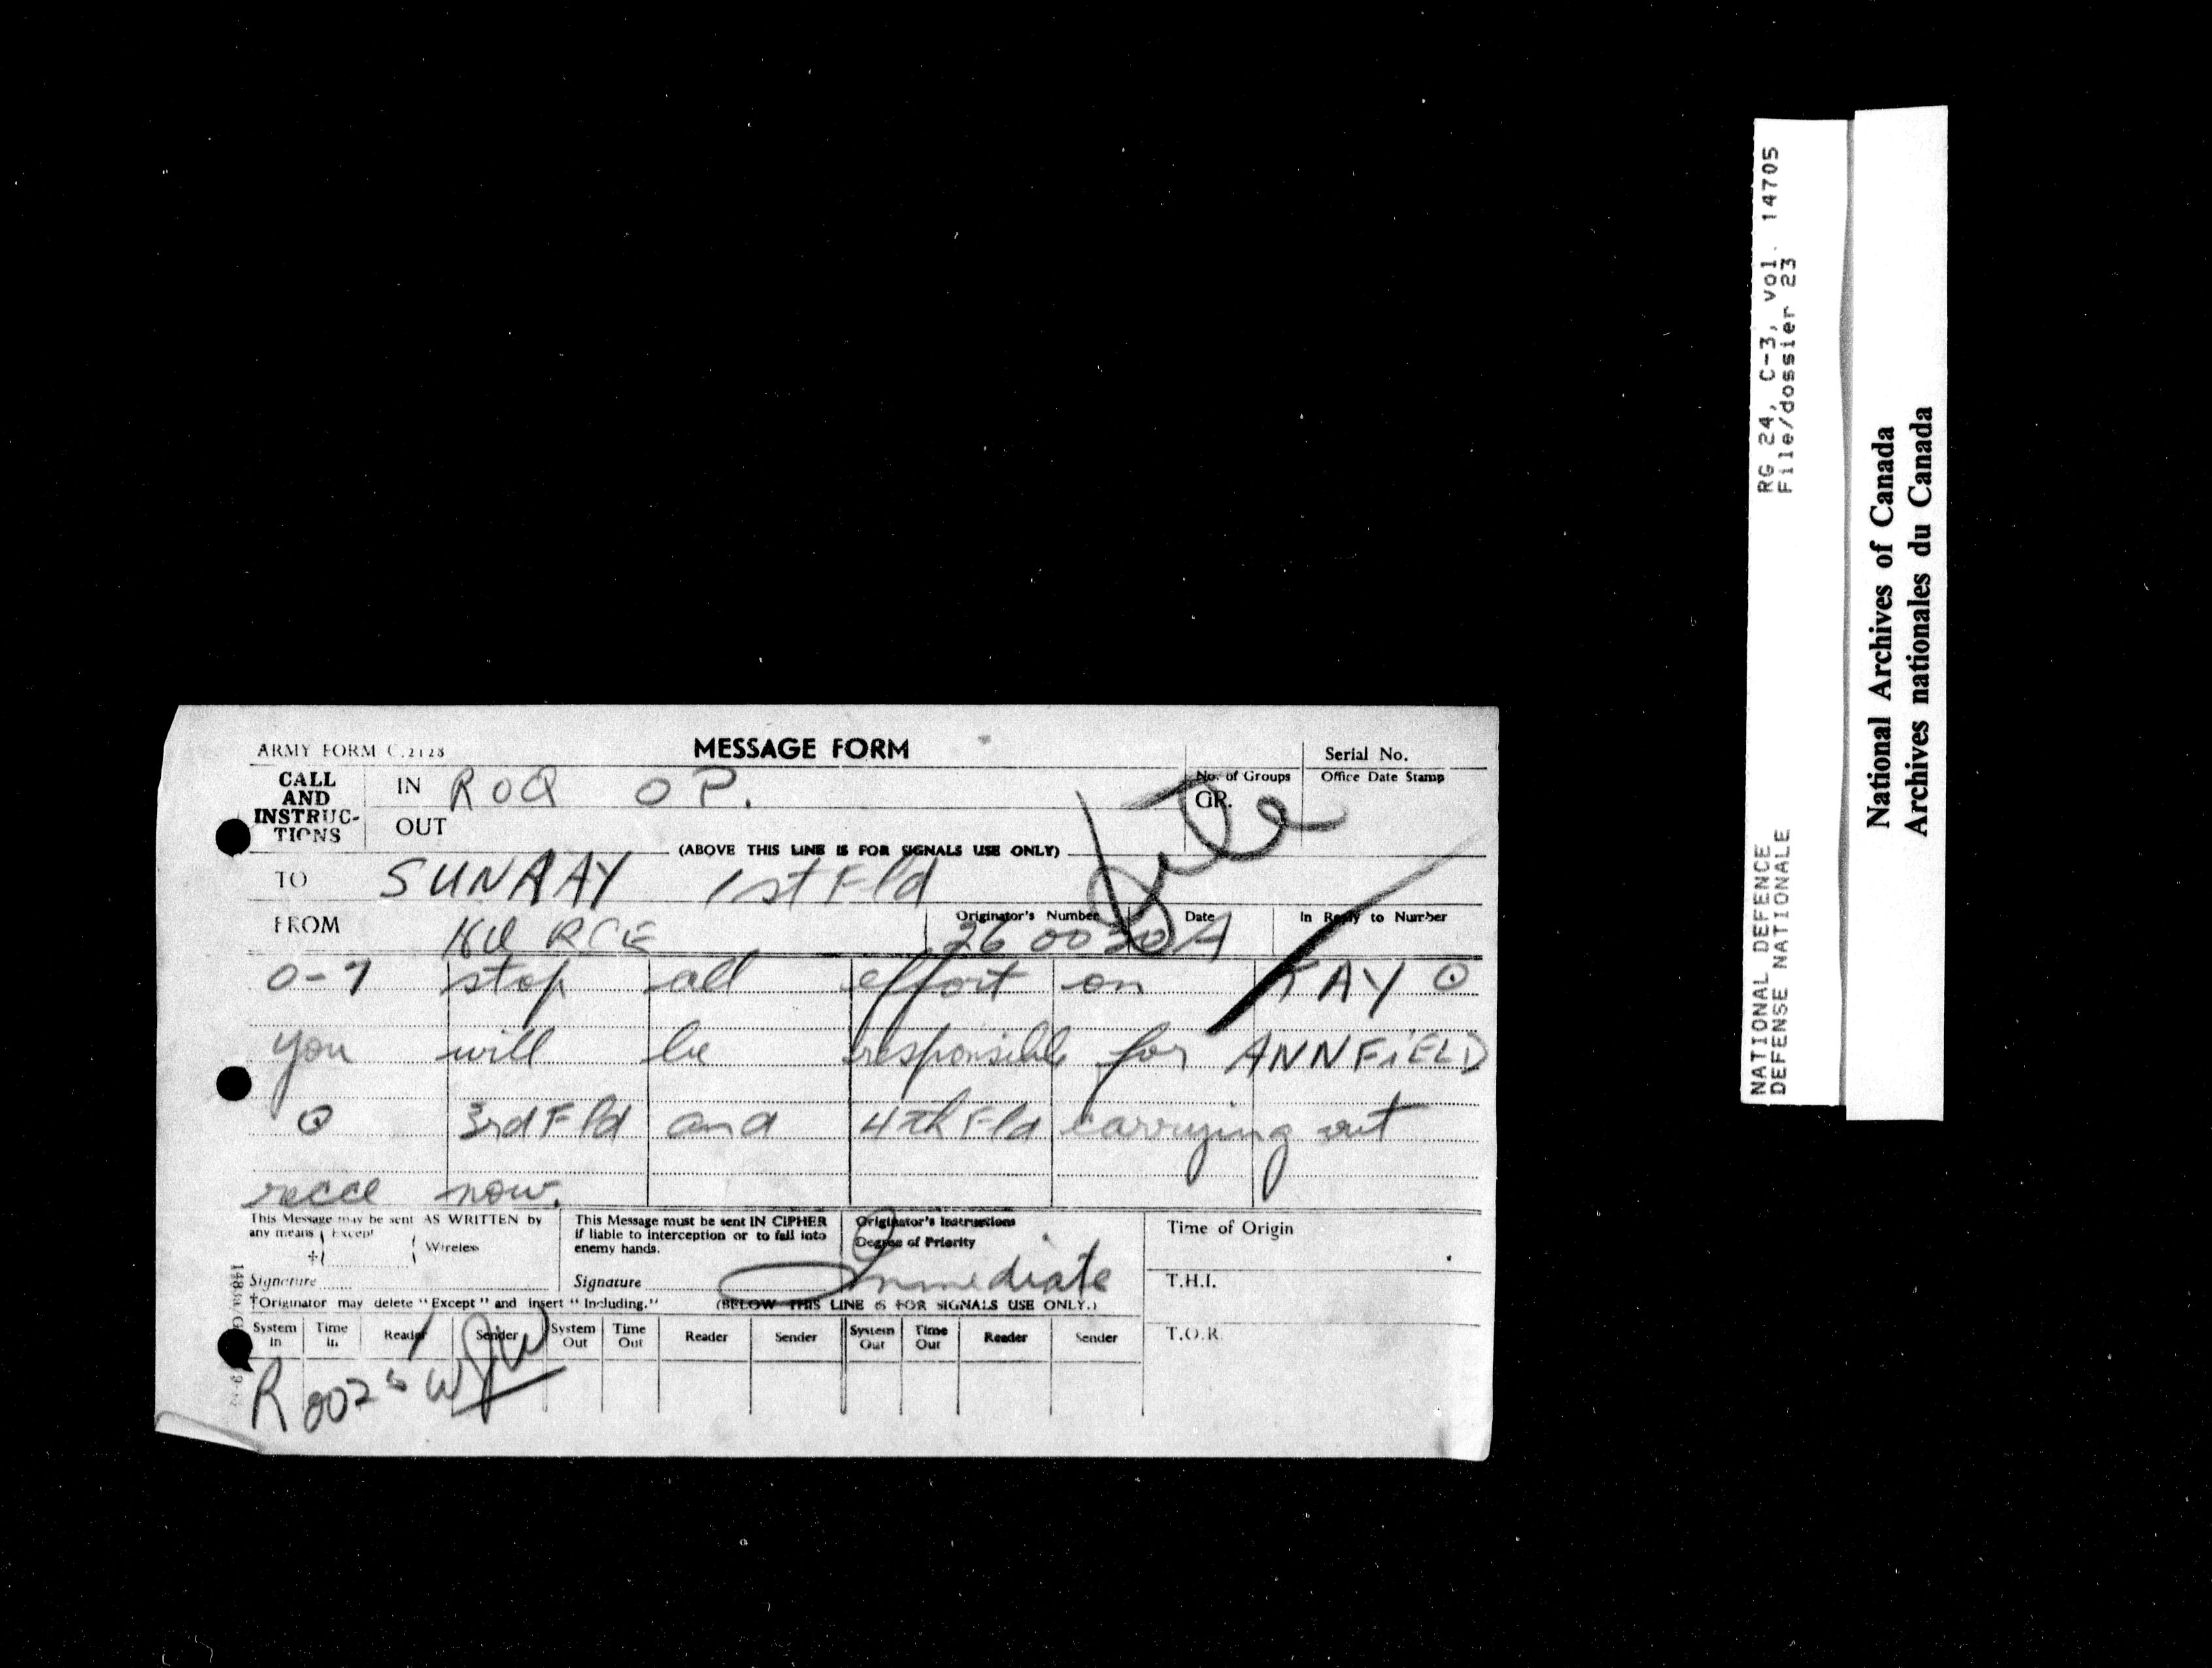 ARMY FORM C.2128
MESSAGE FORM
Serial No.
CALL AND INSTRUC-TIONS
IN ROQ OP.
No. of Groups
GR.
Office Date Stamp
OUT
(ABOVE THIS LINE IS FOR SIGNALS USE ONLY)
File
TO SUNRAY 1st Fld
FROM HQ RCE
Originator's Number
Date
In Reply to Number
26 0030A
O-7 stop all effort on KAY ⊙
you will be responsible for ANNFIELD
⊙ 3rd Fld and 4th Fld carrying out
recce now.
This Message may be sent AS WRITTEN by any means
Except
Wireless
Signature
This Message must be sent IN CIPHER if liable to interception or to fall into enemy hands.
Signature
Originator's Instructions
Degree of Priority
Immediate
Time of Origin
T.H.I.
†Originator may delete "Except" and insert "Including."
(BELOW THIS LINE IS FOR SIGNALS USE ONLY.)
System In Time In Reader Sender System Out Time Out Reader Sender System Out Time Out Reader Sender
T.O.R.
R
RG 24, C-3, vol. 14705
File/dossier 23
NATIONAL DEFENCE
DEFENSE NATIONALE
National Archives of Canada
Archives nationales du Canada